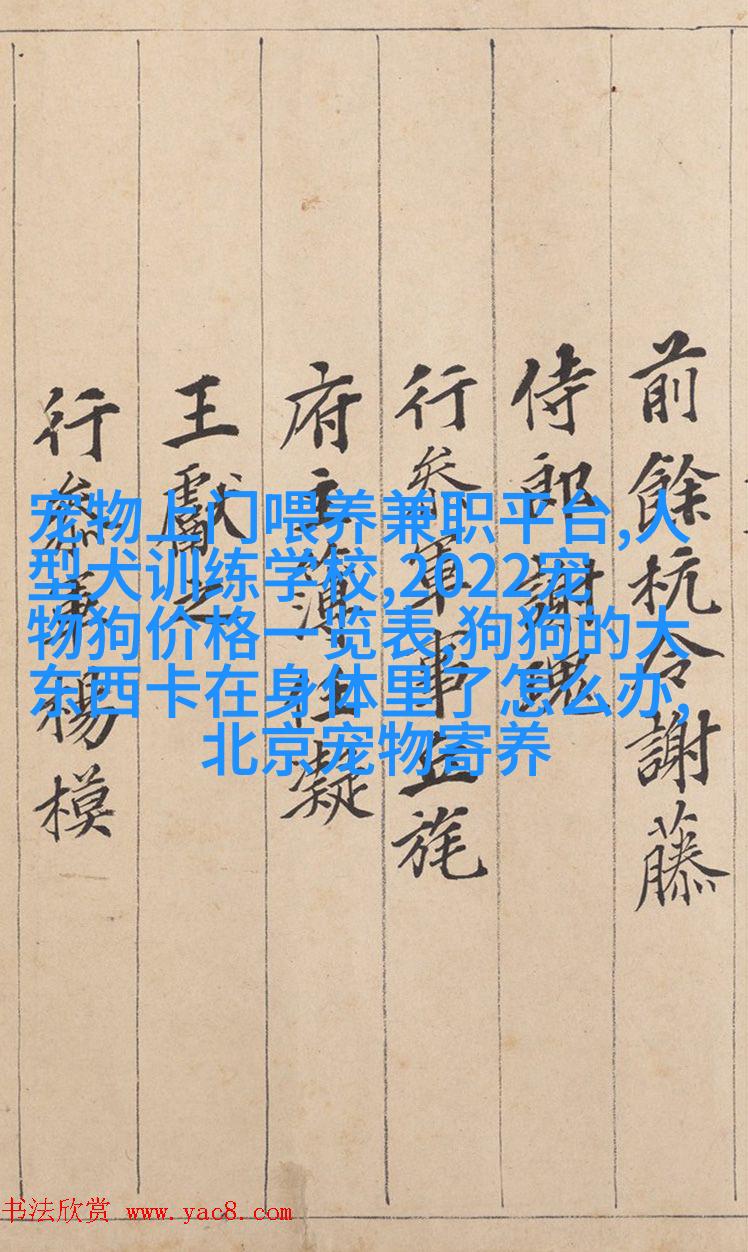 前餘杭令謝藤
侍郎謝瑰
行叅軍事丘旄
府主簿任凝
王獻之
行叅軍楊模
宠物上门喂养兼职平台,人
型犬训练学校,2022宠
物狗价格一览表,狗狗的大
东西卡在身体里了怎么办,
北京宠物寄养
书法欣赏 www.yac8.com